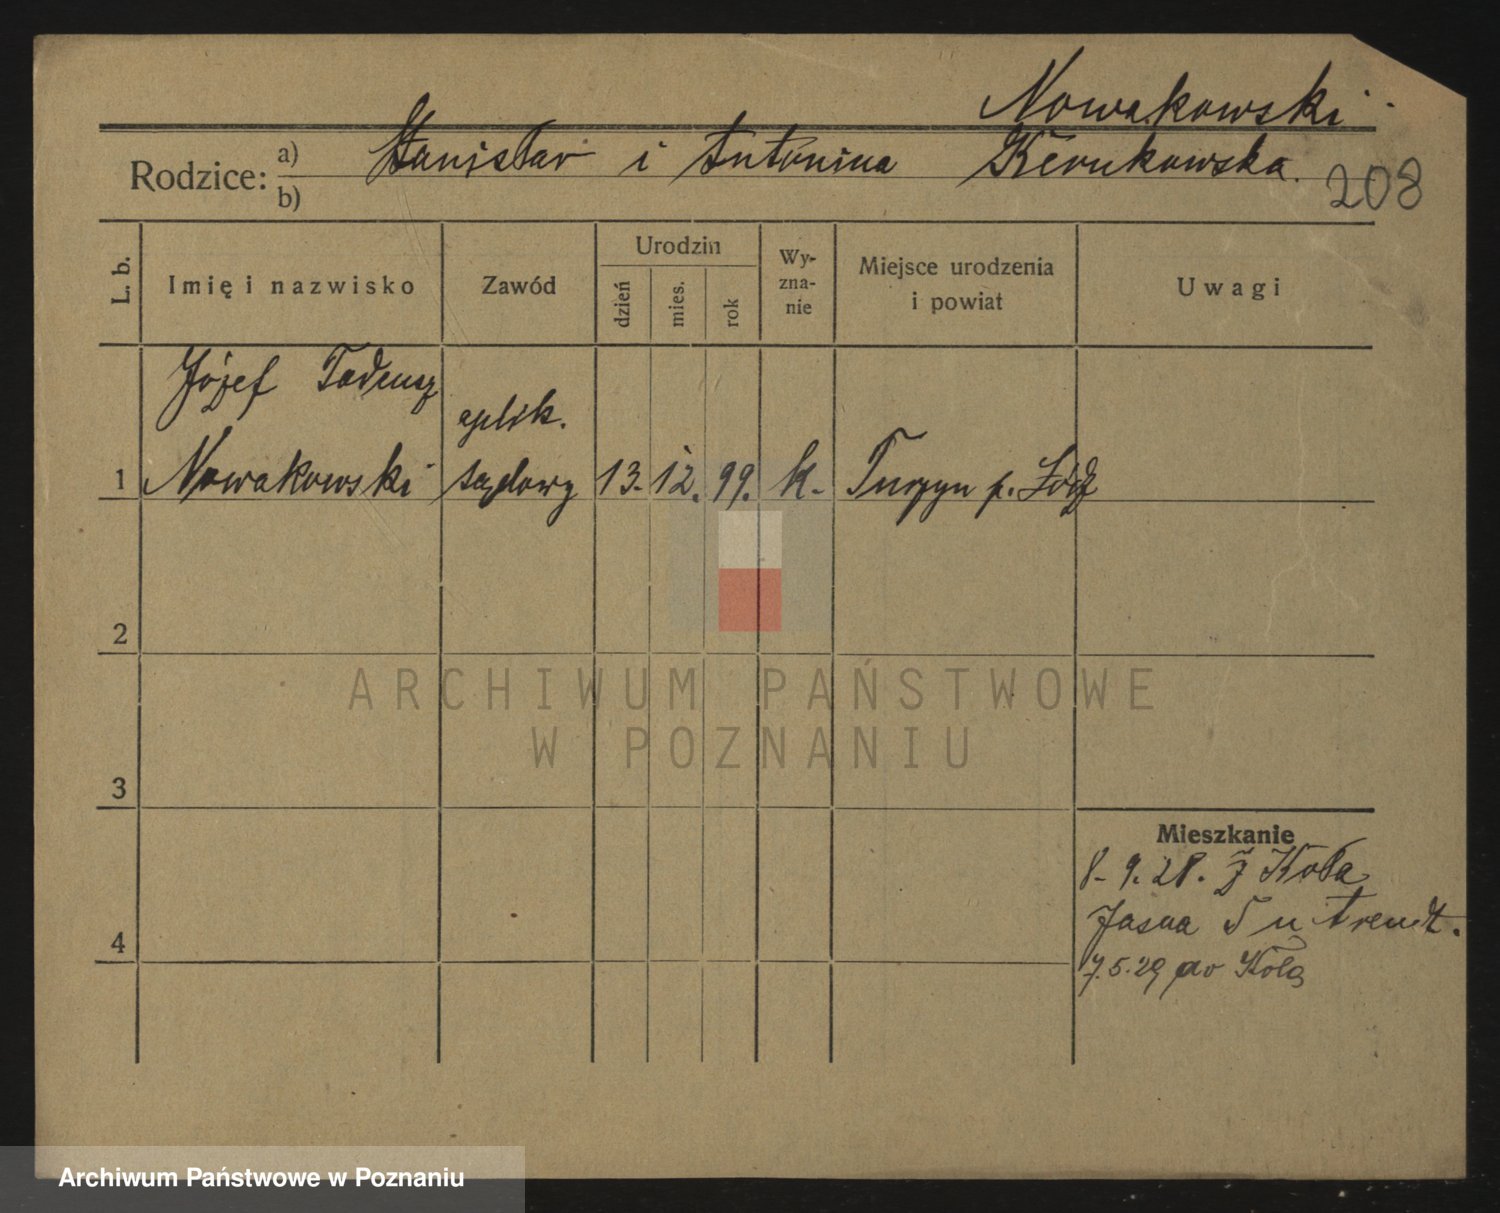 Nowakowski
Rodzice: a) Stanisław i Antonina
b)
208
L. b.
Imię i nazwisko
Zawód
Urodzin
dzień
mies.
rok
Wy-
zna-
nie
Miejsce urodzenia
i powiat
Uwagi
Józef Tadeusz
aplik.
1 Nowakowski sądowy 13. 12. 99. k. p. Łódź
2
3
4
Mieszkanie
8. 9. 28. z Koła
Jasna 5 u
7.5.29 do Koła
ARCHIWUM PAŃSTWOWE
W POZNANIU
Archiwum Państwowe w Poznaniu